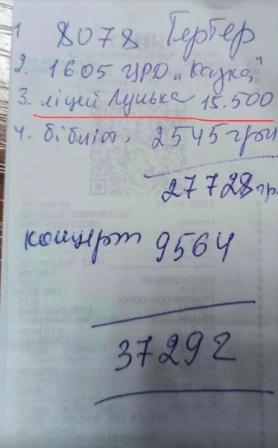 1 8078 Гертер
2. 1605 ЦРО „Казка"
3. ліцей Луцька 15.500
4. бібліот. 2545 грн
27728 гр.
концерт 9564
37292